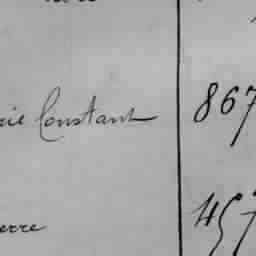 rie Constant 867
erre 457